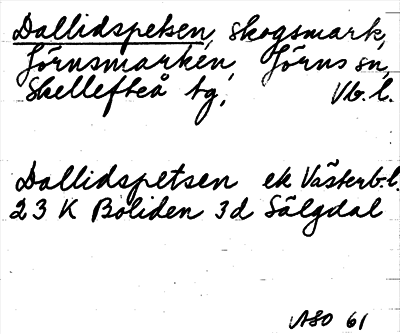 Dallidspetsen, skogsmark,
Jörnsmarken, Jörns sn,
Skellefteå tg, Vb. l.
Dallidspetsen ek Västerb.l.
23 K Boliden 3d Sälgdal
ASO 61